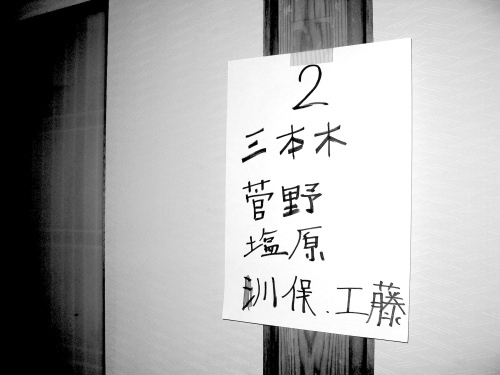 2
三本木
菅野
塩原
川保.工藤